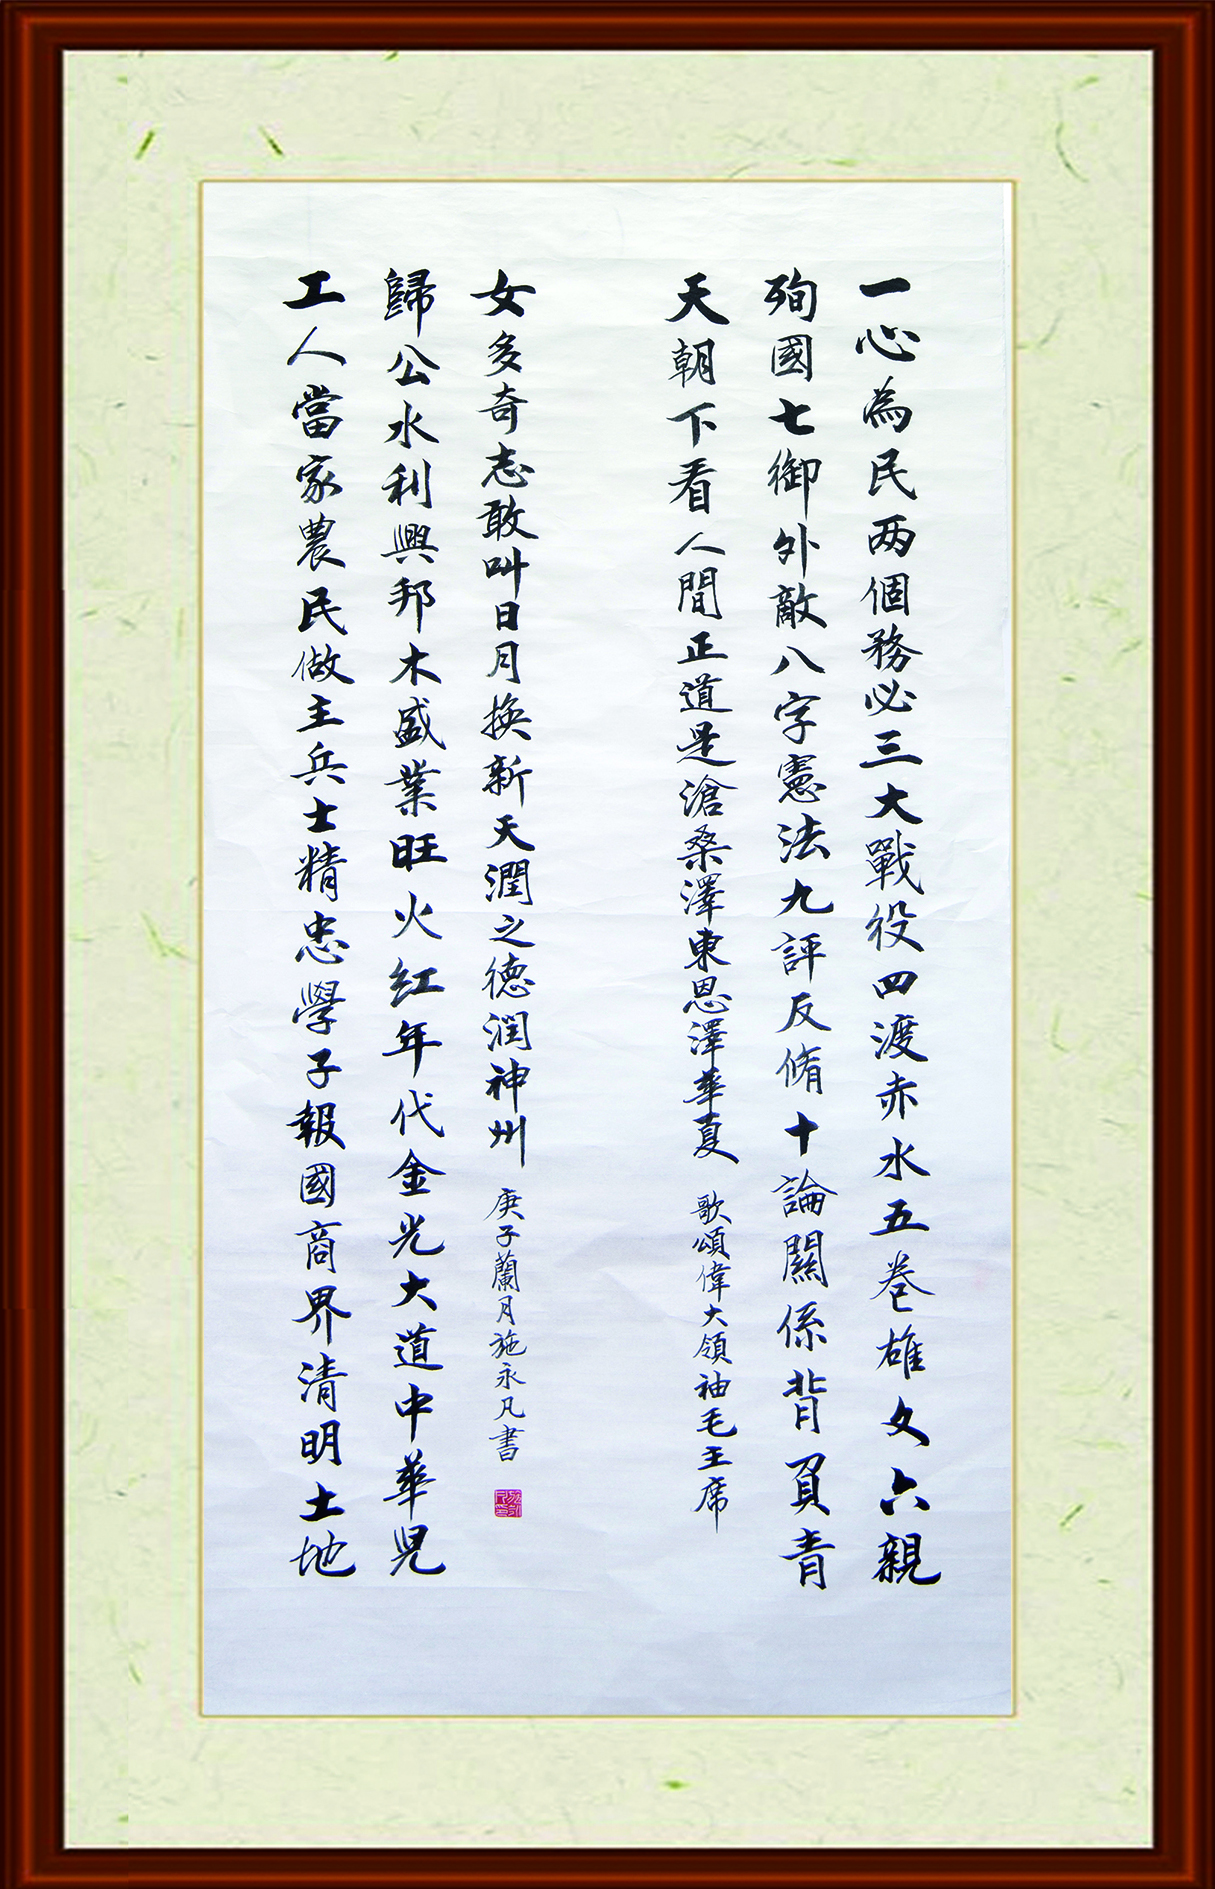 一心為民两個務必三大戰役四渡赤水五卷雄文六親
殉國七御外敵八字憲法九評反脩十論關係背負青
天朝下看人間正道是滄桑澤東恩澤華夏 歌頌偉大領袖毛主席
工人當家農民做主兵士精忠學子報國商界清明土地
歸公水利興邦木盛業旺火红年代金光大道中華兒
女多奇志敢叫日月换新天潤之德潤神州 庚子蘭月施永凡書